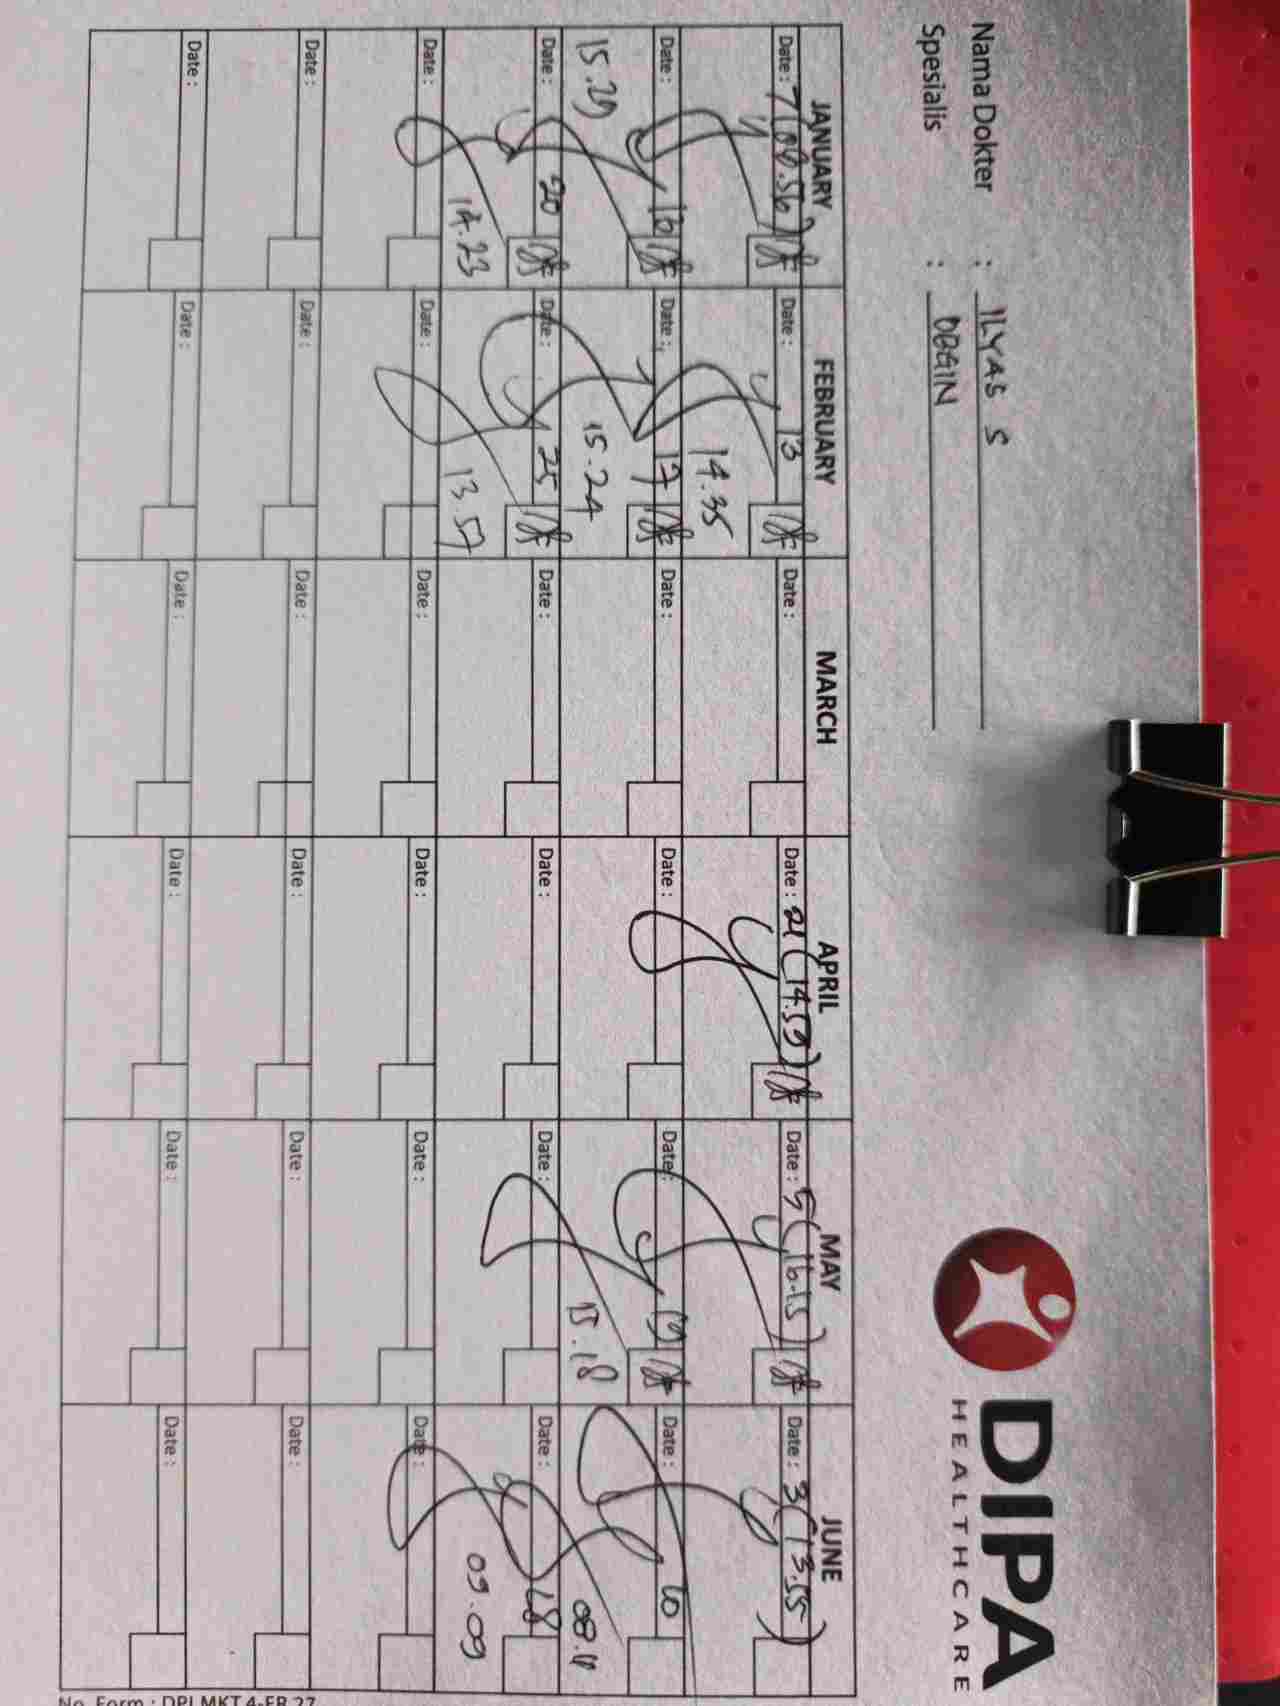 DIPA
HEALTHCARE
Nama Dokter : ILYAS S
Spesialis : OBGIN
JANUARY FEBRUARY MARCH APRIL MAY JUNE
Date : 7 (09.56) Date : 13 Date : Date : 21 (14.59) Date : 5 (16.15) Date : 3 (13.55)
14.35
Date : 16 Date : 17 Date : Date : Date : 19 Date : 10
15.29 15.24 15.18 08.11
Date : 20 Date : 25 Date : Date : Date : Date : 18
14.23 13.57 09.09
Date : Date : Date : Date : Date : Date :
Date : Date : Date : Date : Date : Date :
Date : Date : Date : Date : Date : Date :
No. Form : DPI.MKT.4-FR.27